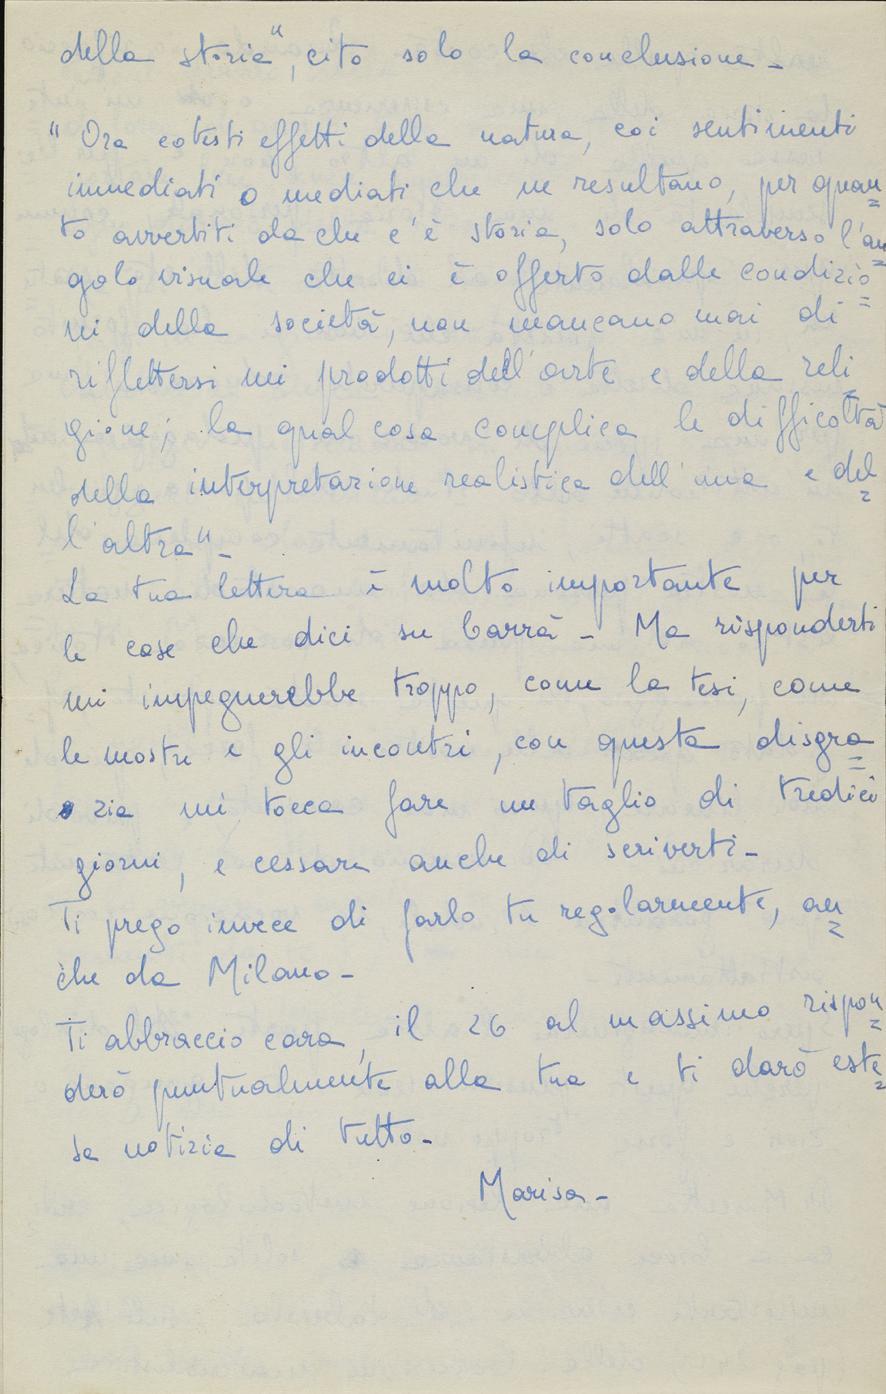 della storia", cito solo la conclusione -
" Ora cotesti effetti della natura, coi sentimenti
immediati o mediati che ne resultano, per quan=
to avvertiti da che c'è storia, solo attraverso l'an=
golo visuale che ci è offerto dalle condizio=
ni della società, non mancano mai di
riflettersi nei prodotti dell'arte e della reli=
gione; la qual cosa complica le difficoltà
della interpretazione realistica dell'una e del=
l'altra" -
La tua lettera è molto importante per
le cose che dici su Carrà - Ma risponderti
mi impegnerebbe troppo, come la tesi, come
le mostre e gli incontri, con questa disgra=
zia mi tocca fare un taglio di tredici
giorni, e cessare anche di scriverti -
Ti prego invece di farlo tu regolarmente, an=
che da Milano -
Ti abbraccio cara, il 26 al massimo rispon=
derò puntualmente alla tua e ti darò este=
se notizie di tutto -
Marisa -